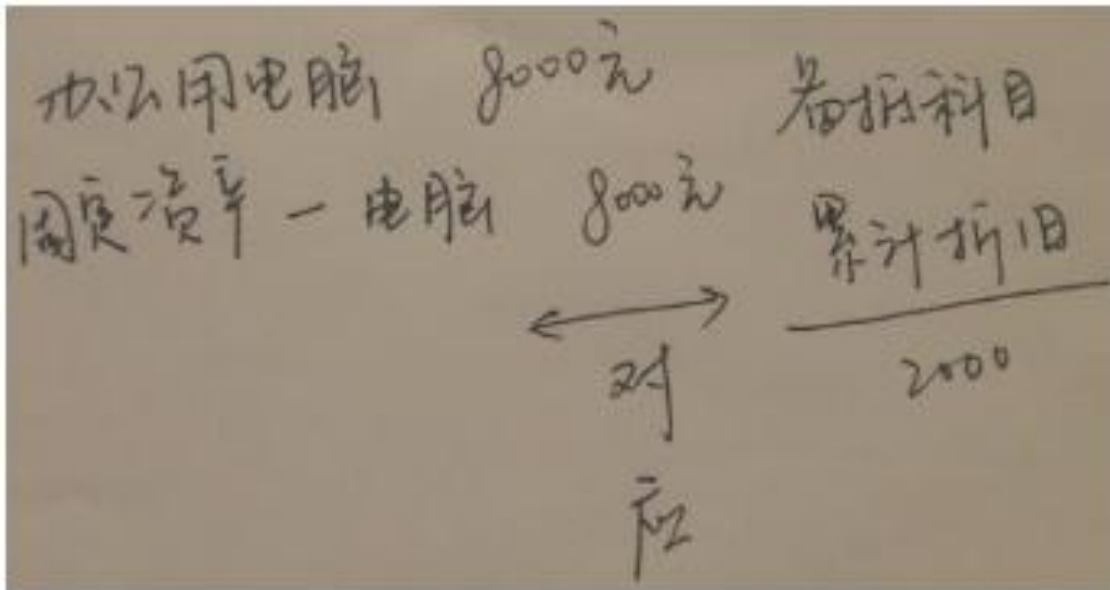 办公用电脑 8000元 备抵科目
固定资产一电脑 8000元 累计折旧
对 2000
应